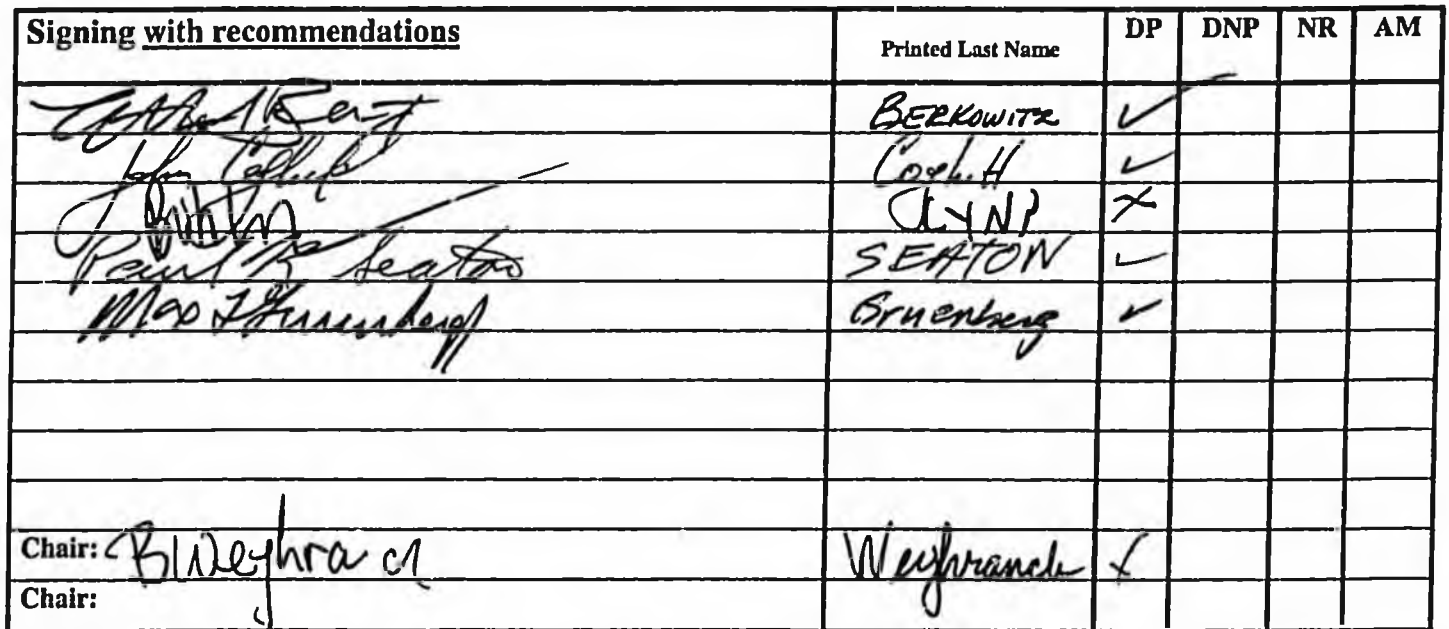 Signing with recommendations Printed Last Name DP DNP NR AM
BERKOWITZ ✓
John Coghill Coghill ✓
LYNN X
Paul K Seaton SEATON ✓
Max F Gruenberg Gruenberg ✓
Chair: B Weyhrauch Weyhrauch X
Chair: